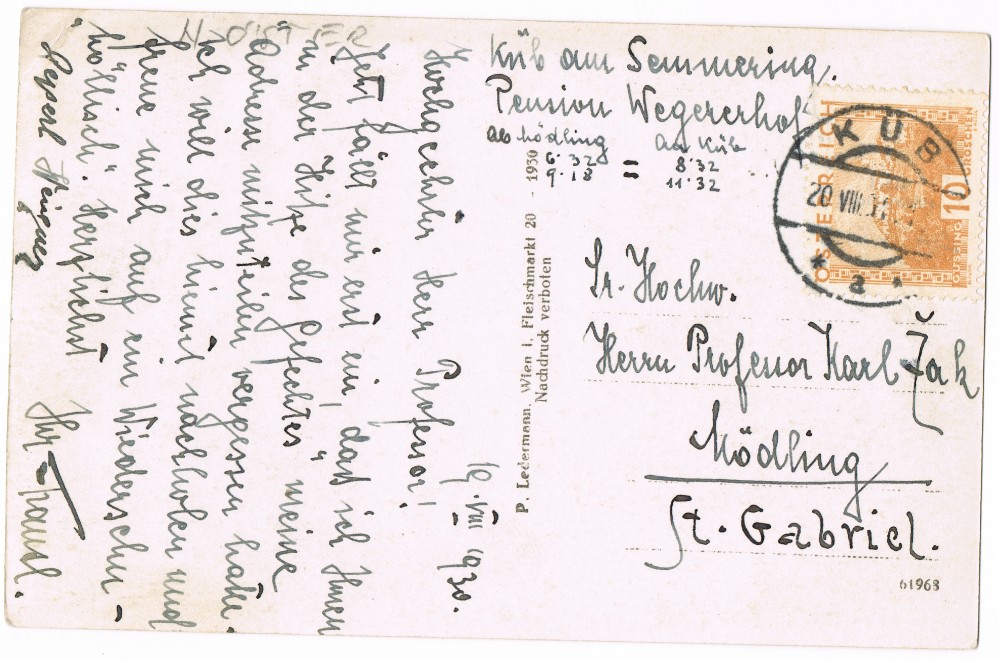 HOLSTER
Küb am Semmering.
Pension Wegererhof
ab Mödling an Küb
6·32 = 8·32
9·18 11·32
19. VIII 1930.
Hochgeehrter Herr Professor!
Jetzt fällt mir erst ein, dass ich Ihnen
in der „Hitze des Gefechtes" meine
Adresse mitzuteilen vergessen habe.
Ich will dies hiemit nachholen und
freue mich auf ein Wiedersehn
„höllisch". Herzlichst Ihr
P. Ledermann, Wien I, Fleischmarkt 20 - 1930
Nachdruck verboten
ÖSTERREICH
10 GROSCHEN
GÜSSING
KÜB
20 VIII
* a *
Sr. Hochw.
Herrn Professor Karl Žak
Mödling
St. Gabriel.
61968